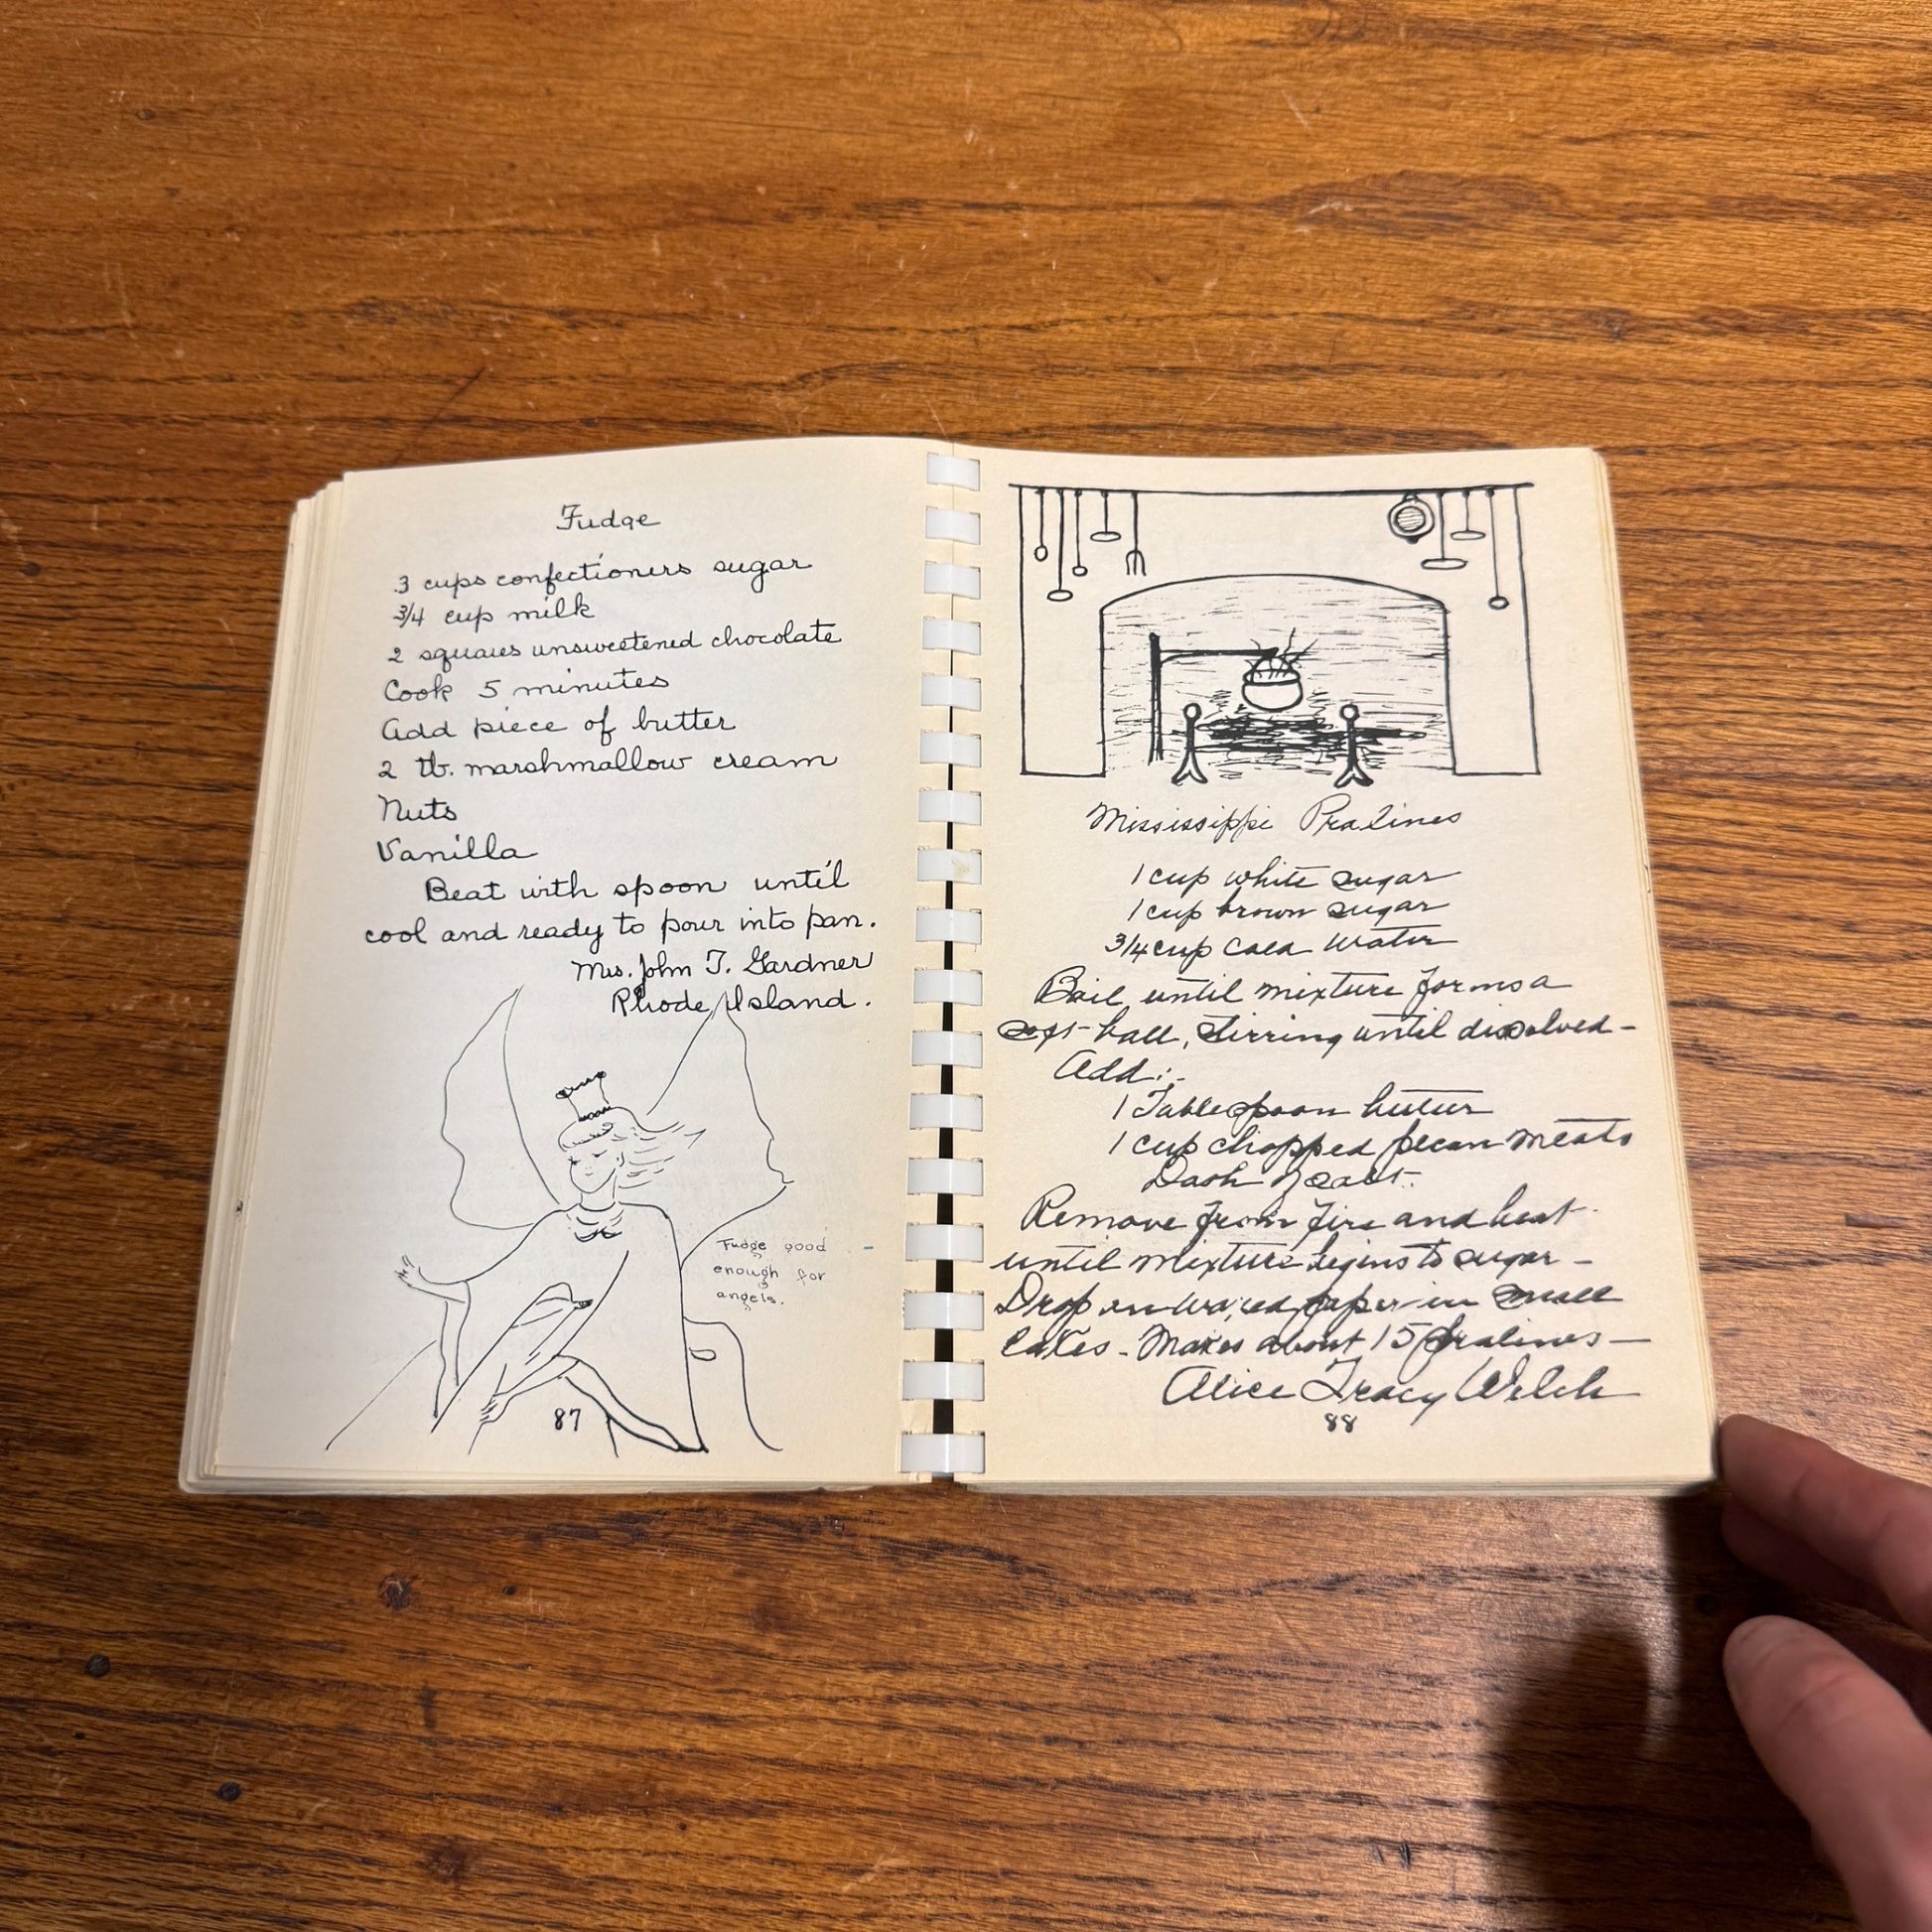 Fudge
3 cups confectioners sugar
3/4 cup milk
2 squares unsweetened chocolate
Cook 5 minutes
Add piece of butter
2 tb. marshmallow cream
Nuts
Vanilla
Beat with spoon until
cool and ready to pour into pan.
Mrs. John T. Gardner
Rhode Island.
Fudge good
enough for
angels.
87
Mississippi Pralines
1 cup white sugar
1 cup brown sugar
3/4 cup cold water
Boil until mixture forms a
soft-ball, stirring until dissolved-
Add:-
1 Tablespoon butter
1 cup chopped pecan meats
Dash of salt.
Remove from fire and beat
until mixture begins to sugar-
Drop on waxed paper in small
cakes. Makes about 15 pralines-
Alice Tracy Welch
88